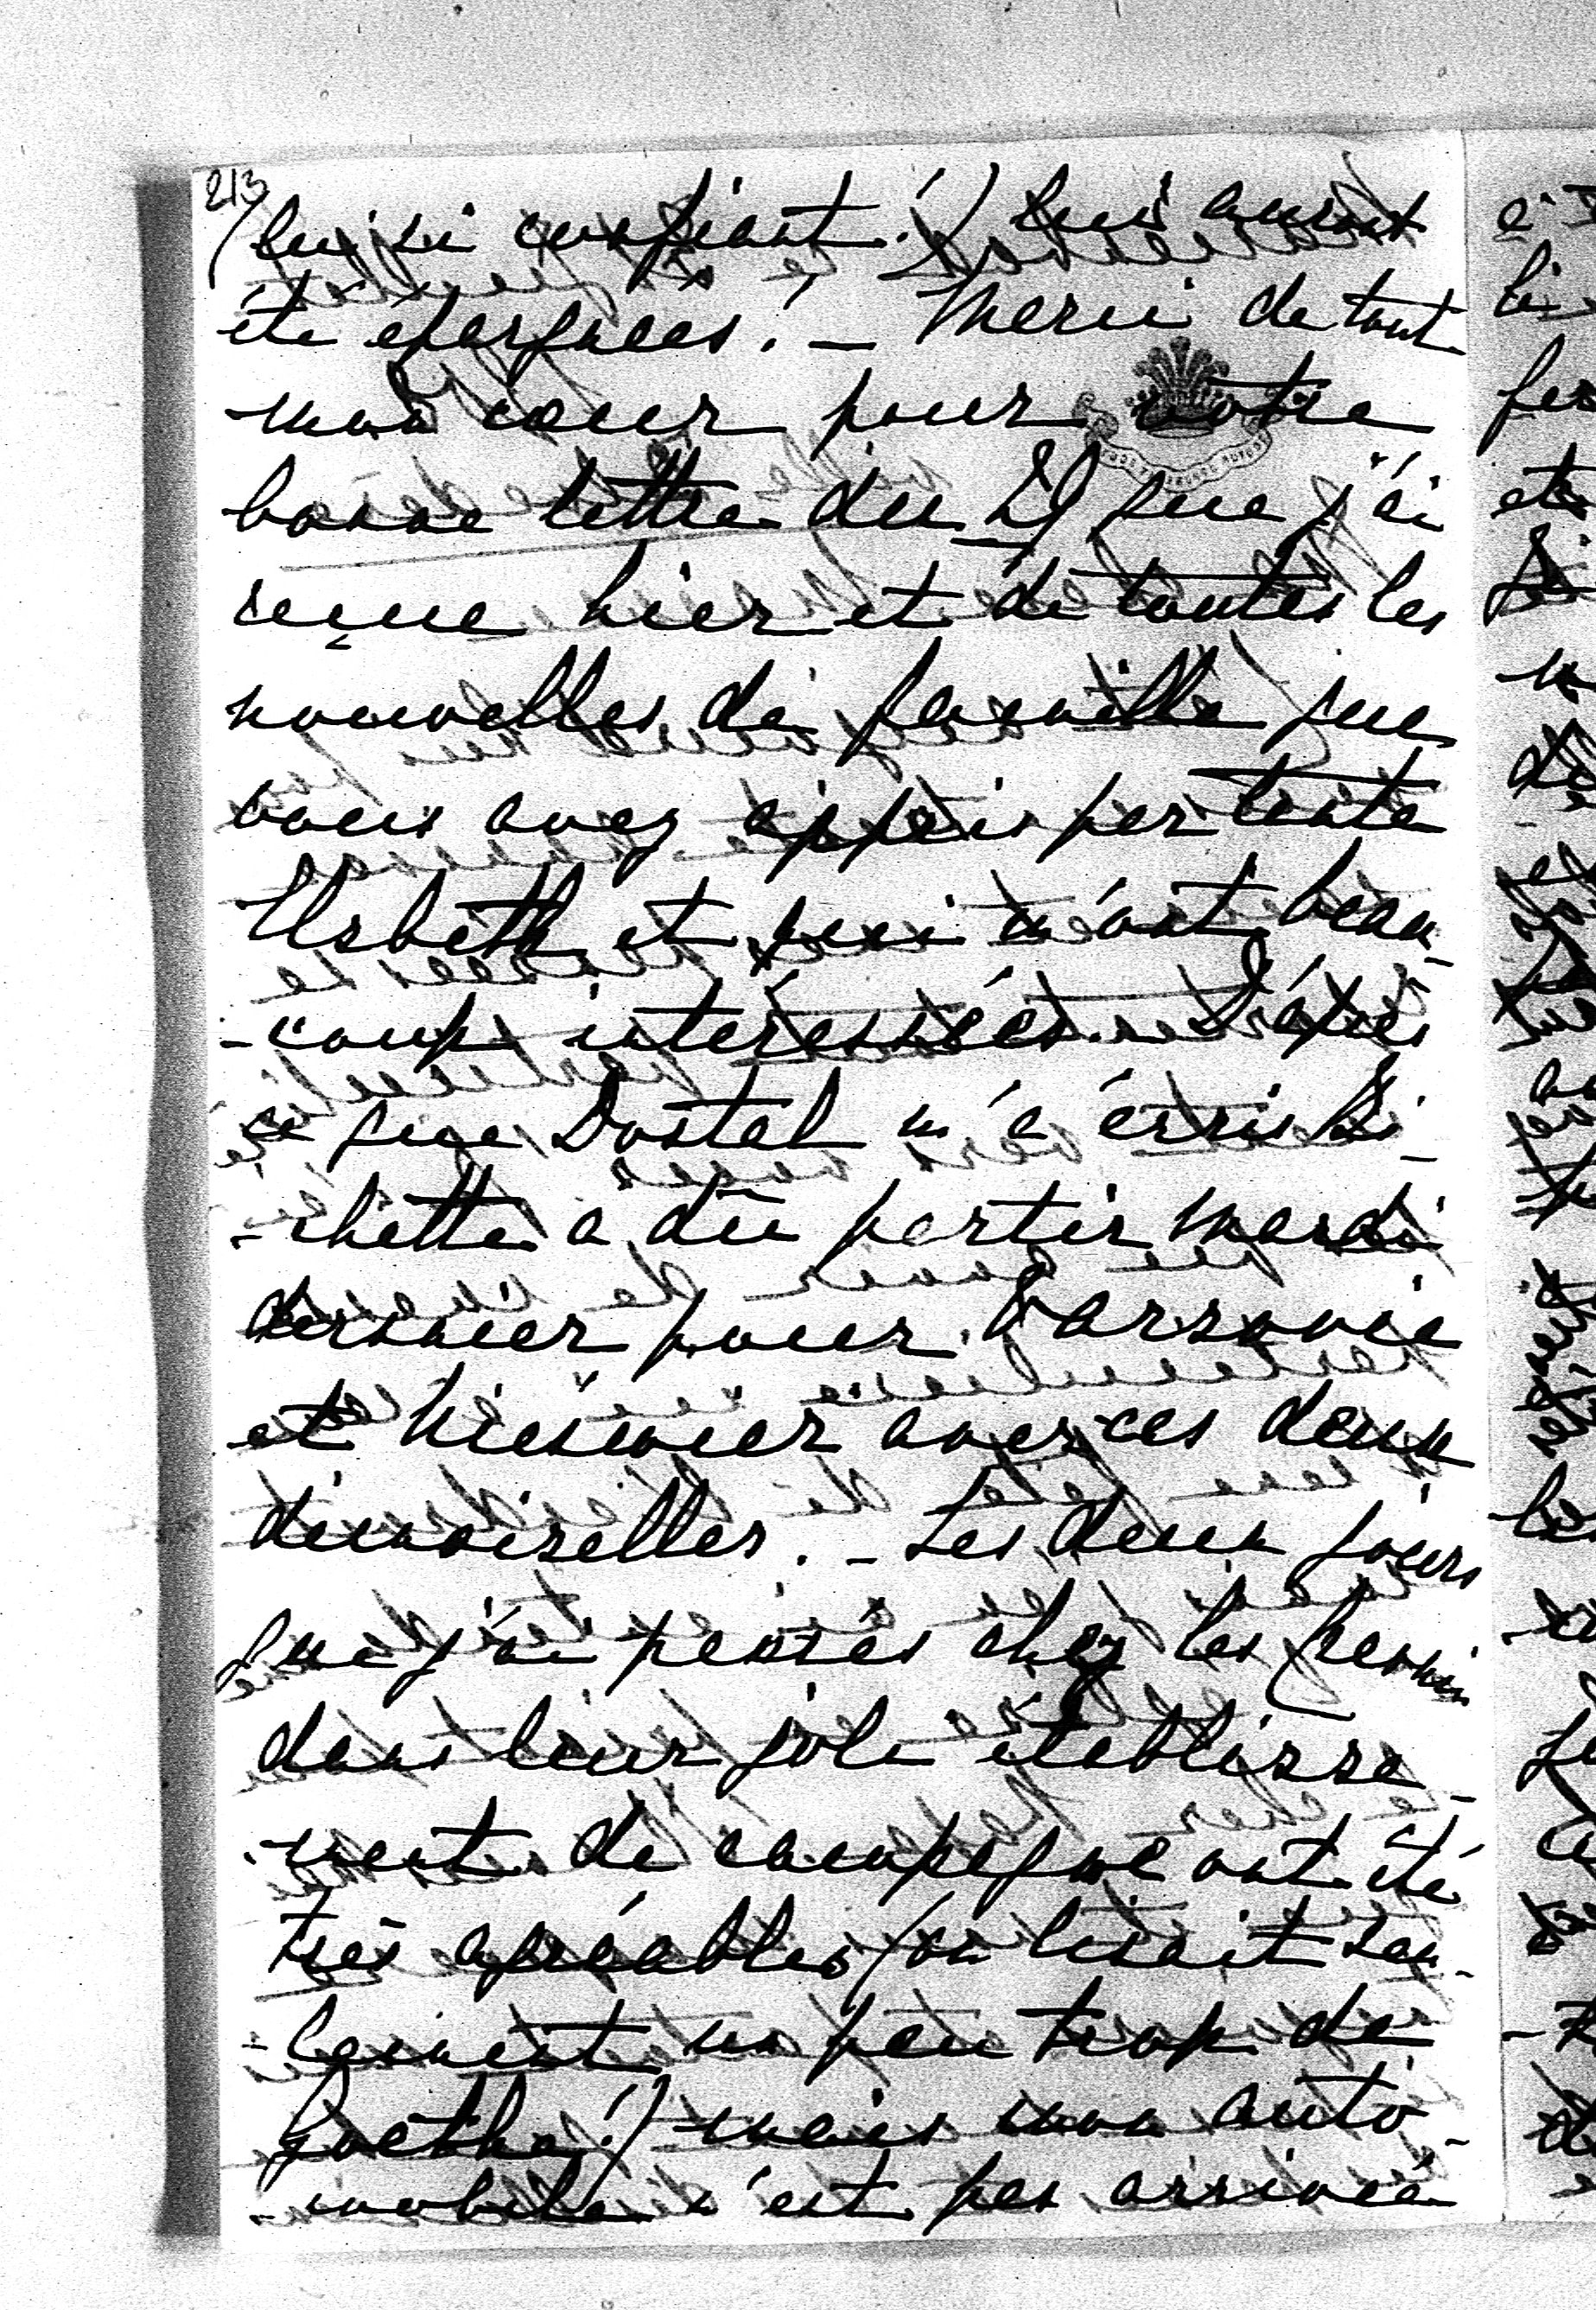 213
(lui si confiant!) lui auront
été épargnées! _ Merci de tout
mon cœur pour votre
bonne lettre du que j'ai
reçue hier et de toutes les
nouvelles de famille que
vous avez appris par tante
Elsbeth et qui m'ont beau-
-coup intéressées. _ D'après
ce que Dostal m'a écris Li-
-chette a dû partir mardi
dernier pour Varsovie
et avec ces deux
demoiselles. _ Les deux jours
que j'ai passés chez les
dans leur joli établisse-
-ment de campagne ont été
très agréables (on lisait seu-
-lement un peu trop de
Goethe!) mais mon auto-
-mobile n'est pas arrivée